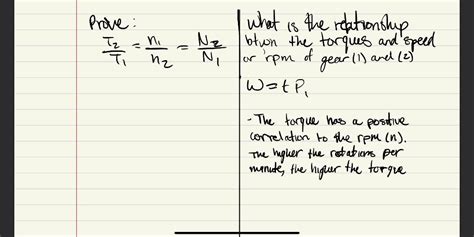 Prove:
T2/T1 = n1/n2 = N2/N1
What is the relationship
btwn the torques and speed
or rpm of gear (1) and (2)
W = t P1
- The torque has a positive
correlation to the rpm (n).
The higher the rotations per
minute, the higher the torque